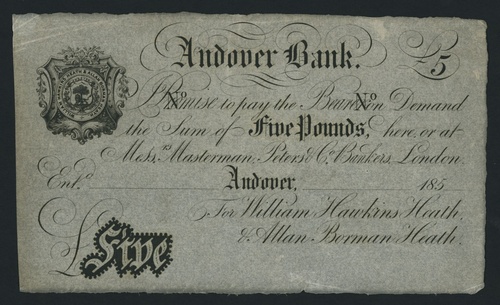 Andover Bank. £5
No. No.
I Promise to pay the Bearer on Demand
the Sum of Five Pounds, here, or at
Mess.rs Masterman, Peters & Co. Bankers, London.
Ent.d Andover, 185
For William Hawkins Heath,
& Allan Borman Heath.
£ Five